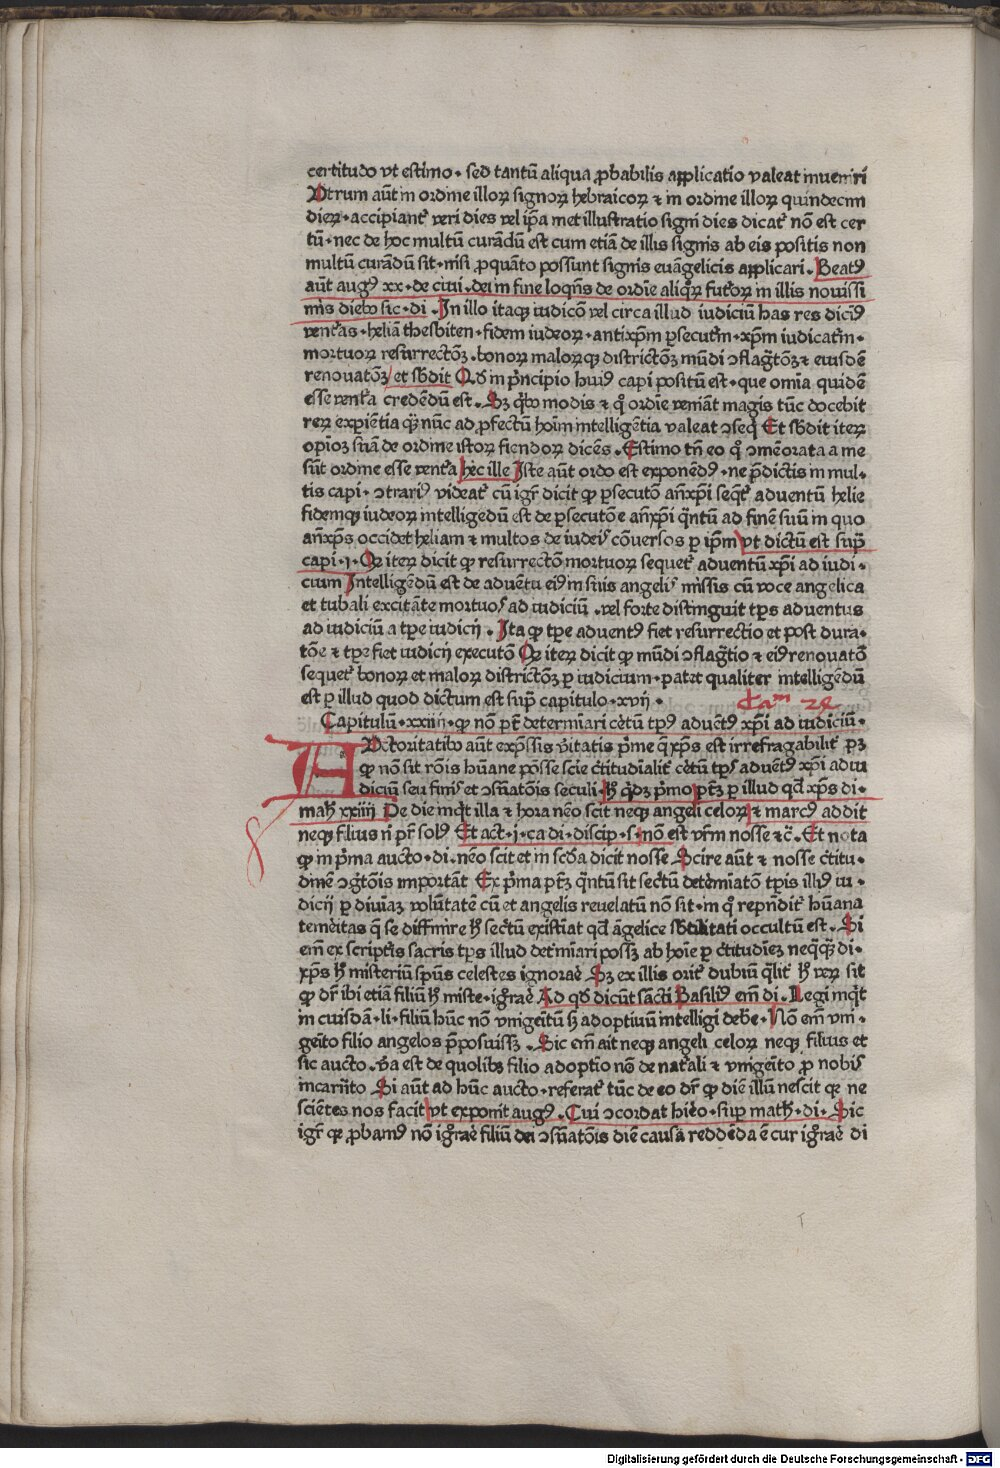 certitudo vt estimo · sed tantū aliqua ꝓbabilis applicatio valeat inueniri
Vtrum aūt in ordine illoꝝ signoꝝ hebraicoꝝ ⁊ in ordine illoꝝ quindecim
dieꝝ · accipiant᷑ veri dies vel ip̄a met illustratio signi dies dicat᷑ nō est cer
tū · nec de hoc multū curādū est cum etiā de illis signis ab eis positis non
multū curādū sit · nisi ꝓquāto possunt signis euāgelicis applicari . Beatꝰ
aūt augꝰ xx · de ciui . dei in fine loqn̄s de ordīe aliqꝝ futoꝝ in illis nouissi
mis diebꝰ sic · di . In illo itaqꝫ iudicō vel circa illud iudiciū has res dicimꝰ
vent᷑as · heliā thesbiten · fidem iudeoꝝ · antixp̄m ꝑsecut᷑m · xp̄m iudicat᷑m ·
mortuoꝝ resurrectōꝫ . bonoꝝ maloꝝqꝫ districtōꝫ mūdi ↄflagr̄tōꝫ ⁊ eiusdē
renouatōꝫ et sb̄dit Qd̄ in pn̄cipio huiꝰ capi positū est · que omīa quidē
esse vent᷑a credēdū est . Sꝫ qbꝰ modis ⁊ qͦ ordīe veniāt magis tūc docebit
reꝝ exꝑiētia qꝫ̄ nūc ad ꝑfectū hoīm intelligētia valeat ↄseq Et sb̄dit iteꝝ
opīoꝫ suā de ordine istoꝝ fiendoꝝ dicēs . Estimo tn̄ eo qͦ ↄmēorata a me
sūt ordine esse vent᷑a hec ille Iste aūt ordo est exponēdꝰ · ne p̄dictis in mul ·
tis capi · ↄtrariꝰ videat᷑ cū igr̄ dicit ꝙ ꝑsecutō an̄xp̄i seqt᷑ aduentū helie
fidemqꝫ iudeoꝝ intelligēdū est de ꝑsecutōe an̄xp̄i qn̄tū ad finē suū in quo
an̄xp̄s occidet heliam ⁊ multos de iudeis cōuersos ꝑ ip̄m vt dictū est sup̄
capi · i · Qꝛ iteꝝ dicit ꝙ resurrectōm mortuoꝝ sequet᷑ aduentū xp̄i ad iudi ·
cium Intelligendū est de aduētu eiꝰ in suis angelis missis cū voce angelica
et tubali excitāte mortuos ad iudiciū . vel forte distinguit tp̄s aduentus
ad iudiciū a tp̄e iudicij . Ita ꝙ tp̄e aduentꝰ fiet resurrectio et post dura ·
tōe ⁊ tp̄e fiet iudicij executō Qꝛ iteꝝ dicit ꝙ mūdi ↄflagr̄tio ⁊ eiꝰ renouatō
sequet᷑ bonoꝝ et maloꝝ districtōꝫ ꝑ iudicium · patet qualiter intelligēdū
est ꝑ illud quod dictum est sup̄ capitulo · xvij · Cam 24
Capitulū · xxiiij · ꝙ nō pt̄ determīari cētū tp̄s aduētꝰ xp̄i ad iudiciū ·
AVctoritatibꝰ aūt exp̄ssis v̄itatis pⁱme q̄ xp̄s est irrefragabilit᷑ pꝫ
ꝙ nō sit rōis hūane posse scire c̄titudīalit᷑ cētū tp̄s aduētꝰ xp̄i ad iu
diciū seu finis et ↄsūatōis seculi . h̄ qdꝫ pⁱmo pt̄ꝫ ꝑ illud qd̄ xp̄s di ·
math̄ xxiiij De die inqt illa ⁊ hora nēo scit neqꝫ angeli celoꝝ ⁊ marcꝰ addit
neqꝫ filius nⁱ pr̄ solꝰ Et act · i · ca di · discip · s · nō est vr̄m nosse ⁊c̄ . Et nota
ꝙ in pⁱma aucto · di . nēo scit et in scd̄a dicit nosse Scire aūt ⁊ nosse c̄titu ·
dinē ↄgtōis importāt Ex pⁱma pt̄ꝫ qn̄tū sit sectū detēmīatō tꝑis illiꝰ iu ·
dicij ꝑ diuinā volūtatē cū et angelis reuelatū nō sit · in qͦ reprn̄dit᷑ hūana
temēitas q̄ se diffinire h̄ sectū existīat qd̄ āgelice sb̄tilitati occultū est . Si
em̄ ex scriptis sacris tp̄s illud det᷑mīari possꝫ ab hoīe ꝑ c̄titudīeꝫ neqqꝫ̄ di ·
xp̄s h̄ misteriū sp̄us celestes ignorare Sꝫ ex illis orit᷑ dubiū qlit᷑ h̄ veꝝ sit
ꝙ dr̄ ibi etiā filiū h̄ miste · igr̄are Ad qd̄ dicūt sācti Basiliꝰ em̄ di . Legi inqt
in cuisdā · li · filiū hūc nō vnigeītū sꝫ adoptiuū intelligi debere · Nō em̄ vni ·
geīto filio angelos p̄posuissꝫ . Sic em̄ ait neqꝫ angeli celoꝝ neqꝫ filius et
sic aucto · v̄a est de quolibꝫ filio adoptīo nō de nat᷑ali ⁊ vnigeīto ꝓ nobis
incarn̄to Si aūt ad hūc aucto · referat᷑ tūc de eo dr̄ ꝙ diē illū nescit qꝛ ne
sciētes nos facit vt exponit augꝰ . Cui ↄcordat hiēo · sup math̄ · di · Sic
igr̄ qꝛ ꝓbamꝰ nō igr̄are filiū dei ↄsūatōis diē causa reddēda ē cur igr̄are di
Digitalisierung gefördert durch die Deutsche Forschungsgemeinschaft - DFG